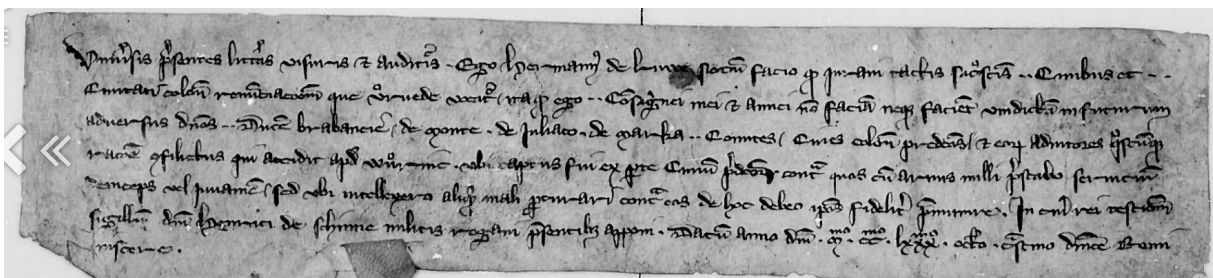 Universis presentes litteras visuris et audituris. Ego Hermannus de notum facio quod iuravi tactis sacrosanctis .. Civibus et ..
Civitati Colon renuntiationem que vocatur, ita quod ego .. Consanguinei mei et amici non faciam neque facient vindictam in futurum
adversus dominos .. Ducem Brabancie, de Monte, de Iuliaco, de Marka .. Comites, Cives Colon predictos, et eorum adiutores quoscumque
ratione conflictus qui accidit apud ubi captus fui ex parte Civium predictorum contra quos cum armis nulli prestabo servicium
deinceps vel iuvamen, sed ubi intellexero aliquid mali procurari contra eos de hoc debeo ipsos fideliter premunire. In cuius rei testimonium
sigillum domini Henrici de militis rogavi presentibus apponi. Datum anno domini mo cco lxxxmo octo crastino dominice
misere.